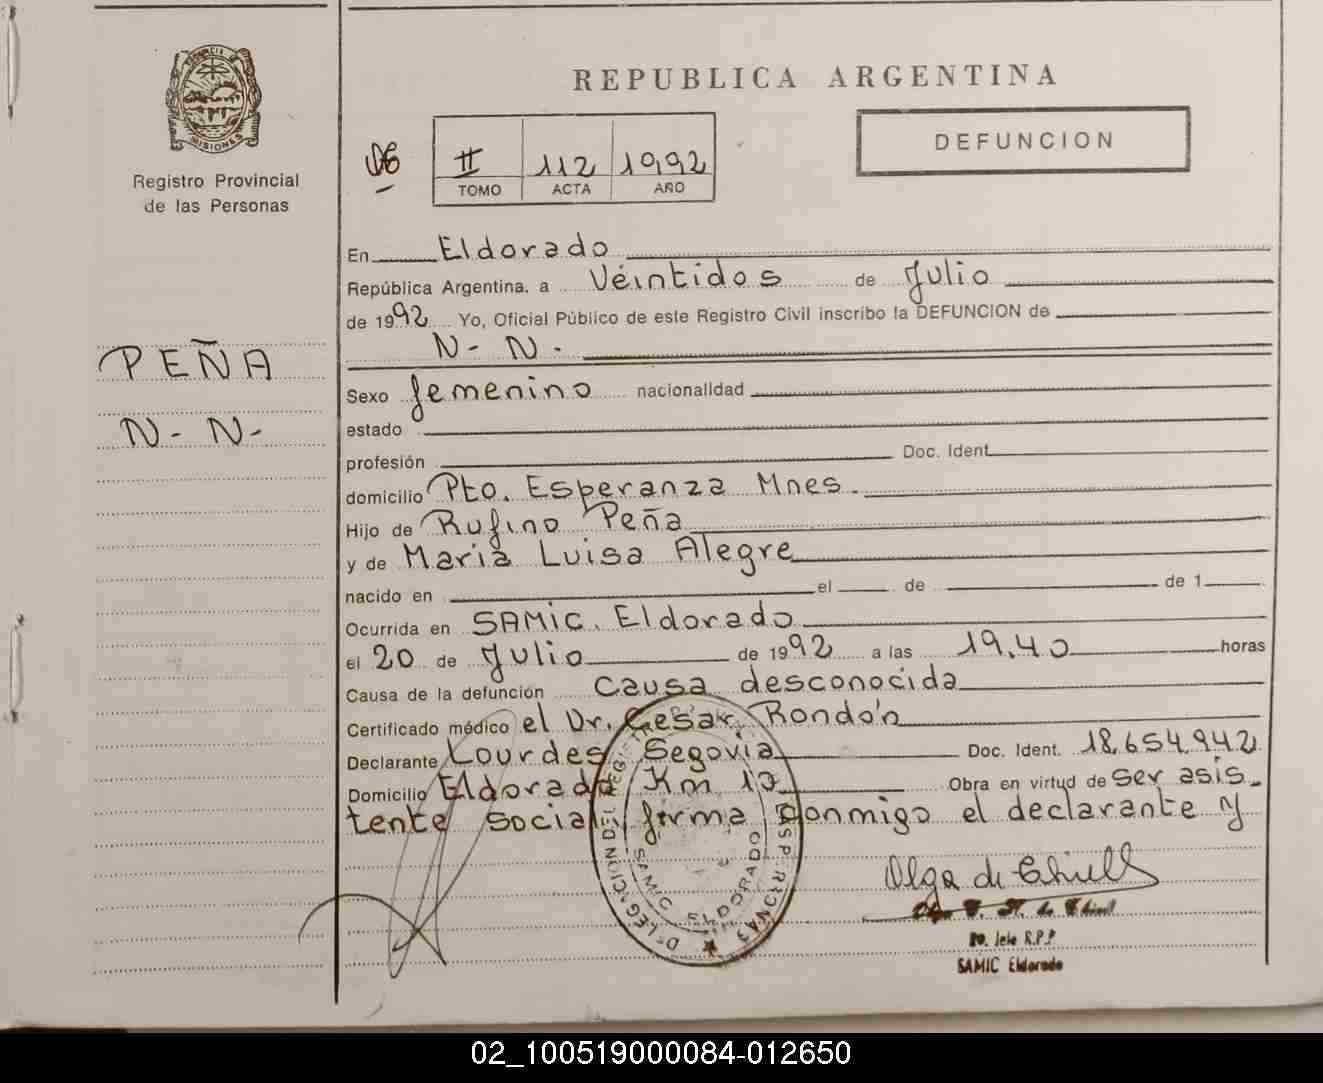 PROVINCIA D
MISIONES
Registro Provincial
de las Personas
PEÑA
N - N -
REPUBLICA ARGENTINA
DEFUNCION
06
II 112 1992
TOMO ACTA AÑO
En Eldorado
República Argentina, a Veintidos de Julio
de 1992 Yo, Oficial Público de este Registro Civil inscribo la DEFUNCION de
N - N -
Sexo femenino nacionalidad
estado
profesión Doc. Ident.
domicilio Pto. Esperanza Mnes.
Hijo de Rufino Peña
y de Maria Luisa Alegre
nacido en el de de 1
Ocurrida en SAMIC. Eldorado
el 20 de Julio de 1992 a las 19,40 horas
Causa de la defunción causa desconocida
Certificado médico el Dr. Cesar Rondón
Declarante Lourdes Segovia Doc. Ident. 18.654.942
Domicilio Eldorado Km 10 Obra en virtud de ser asis-
tente social firma conmigo el declarante y
DELEGACION DEL REGISTRO P. DE LAS PERSONAS
SAMIC ELDORADO
Olga de Chiell
Jefe R.P.P
SAMIC Eldorado
02_100519000084-012650